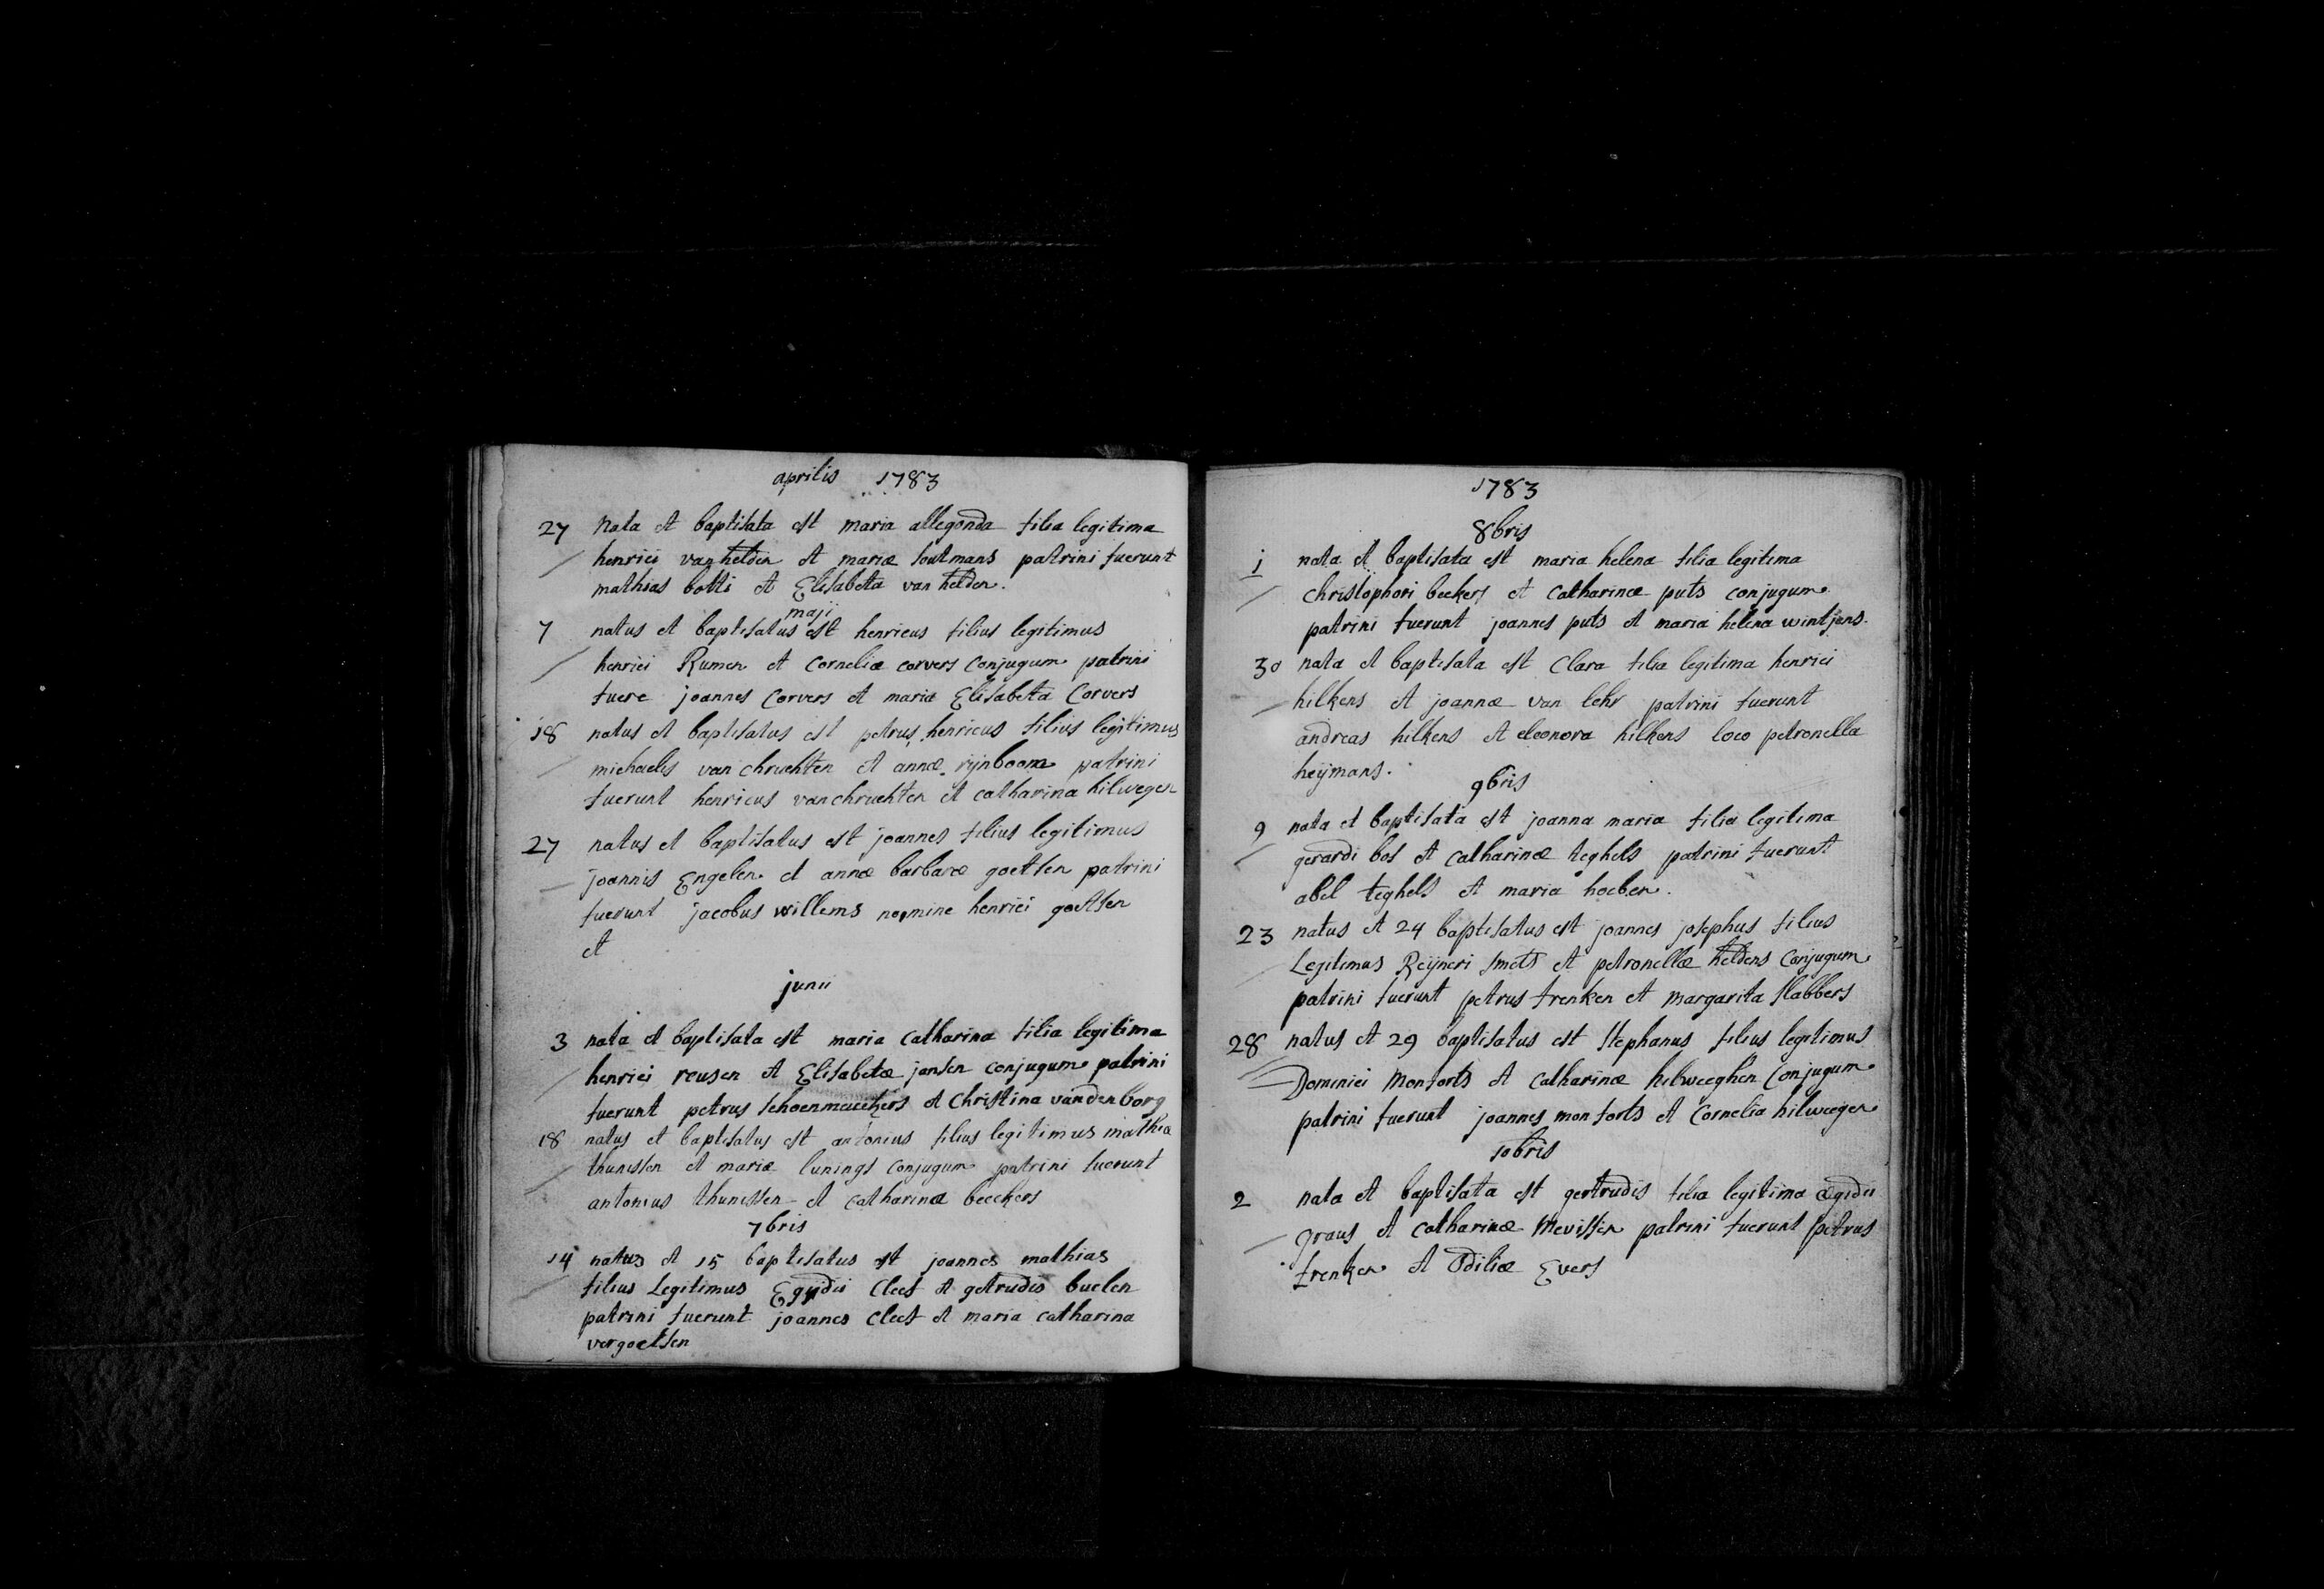 aprilis 1783
27 Nata et baptisata est maria allegonda filia legitima
henrici van helden et mariæ soutmans patrini fuerunt
mathias botti et Elisabeta van helden.
maji
7 natus et baptisatus est henricus filius legitimus
henrici Rumen et Corneliæ corvers Conjugum patrini
fuere joannes Corvers et maria Elisabeta Corvers
18 natus et baptisatus est petrus henricus filius legitimus
michaelis van chruchten et annæ rijnboom patrini
fuerunt henricus van chruchten et catharina hilwegen
27 natus et baptisatus est joannes filius legitimus
joannis Engelen et annæ barbaræ goetsen patrini
fuerunt jacobus willems nomine henrici goetsen
et
junii
3 nata et baptisata est maria Catharina filia legitima
henrici reusen et Elisabetæ jansen conjugum patrini
fuerunt petrus schoenmaeckers et Christina vandenborg
18 natus et baptisatus est antonius filius legitimus mathiæ
thunissen et mariæ lunings conjugum patrini fuerunt
antonius thunissen et catharinæ beeckers
7bris
14 natus et 15 baptisatus est joannes mathias
filius Legitimus Egidii Clees et getrudis buelen
patrini fuerunt joannes Clees et maria catharina
vergoetsen
1783
8bris
j nata et baptisata est maria helena filia legitima
christophori beckers et Catharinæ puts conjugum
patrini fuerunt joannes puts et maria helena wintjens.
30 nata et baptisata est Clara filia legitima henrici
hilkens et joannæ van lehr patrini fuerunt
andreas hilkens et eleonora hilkens loco petronella
heijmans.
9bris
9 nata et baptisata est joanna maria filia legitima
gerardi bos et catharinæ teghels patrini fuerunt
abel teghels et maria hoeben.
23 natus et 24 baptisatus est joannes josephus filius
Legitimus Reijneri smets et petronellæ heldens Conjugum
patrini fuerunt petrus frenken et margarita slabbers
28 natus et 29 baptisatus est stephanus filius legitimus
Dominici Monforts et catharinæ hilweeghen Conjugum
patrini fuerunt joannes monforts et Cornelia hilweegen
10bris
2 nata et baptisata est gertrudis filia legitima ægidii
graus et catharinæ Mevissen patrini fuerunt petrus
frenken et Odiliæ Evers